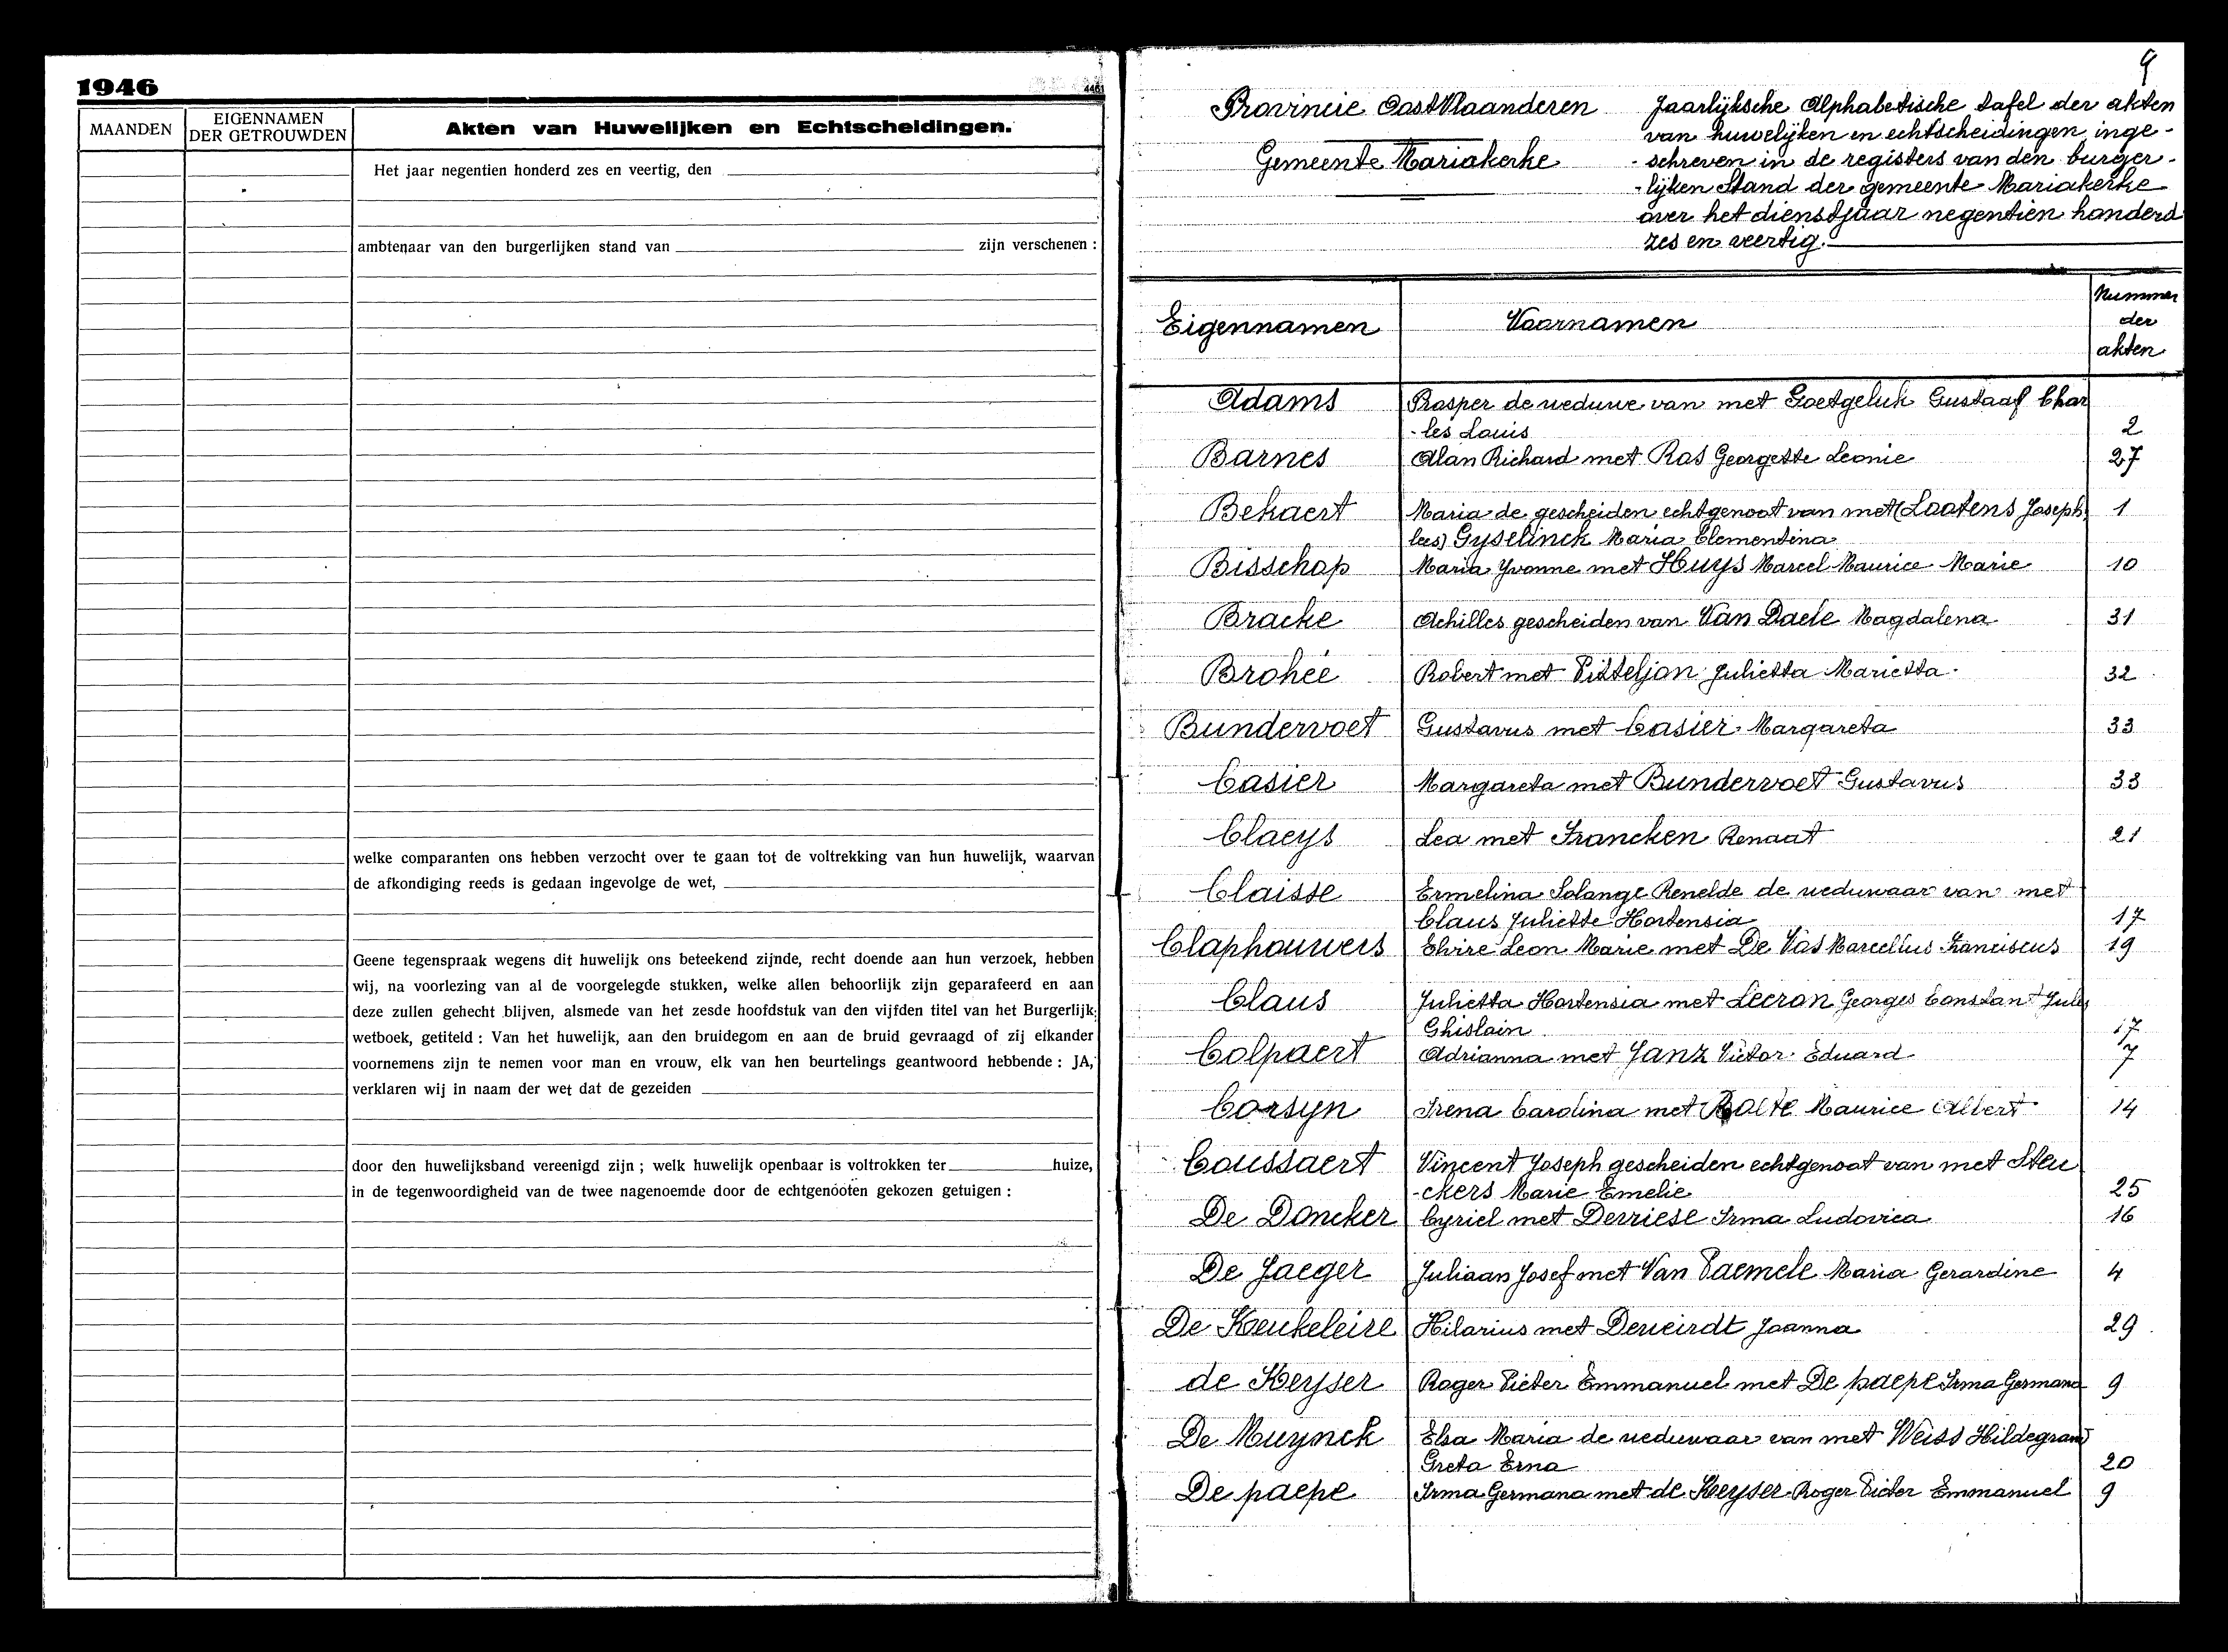 1946
4461
MAANDEN
EIGENNAMEN
DER GETROUWDEN
Akten van Huwelijken en Echtscheidingen.
Het jaar negentien honderd zes en veertig, den
ambtenaar van den burgerlijken stand van zijn verschenen :
welke comparanten ons hebben verzocht over te gaan tot de voltrekking van hun huwelijk, waarvan
de afkondiging reeds is gedaan ingevolge de wet,
Geene tegenspraak wegens dit huwelijk ons beteekend zijnde, recht doende aan hun verzoek, hebben
wij, na voorlezing van al de voorgelegde stukken, welke allen behoorlijk zijn geparafeerd en aan
deze zullen gehecht blijven, alsmede van het zesde hoofdstuk van den vijfden titel van het Burgerlijk
wetboek, getiteld : Van het huwelijk, aan den bruidegom en aan de bruid gevraagd of zij elkander
voornemens zijn te nemen voor man en vrouw, elk van hen beurtelings geantwoord hebbende : JA,
verklaren wij in naam der wet dat de gezeiden
door den huwelijksband vereenigd zijn ; welk huwelijk openbaar is voltrokken ter huize,
in de tegenwoordigheid van de twee nagenoemde door de echtgenooten gekozen getuigen :
9
Provincie Oost Vlaanderen
Gemeente Mariakerke
Jaarlijksche Alphabetische tafel der akten
van huwelijken en echtscheidingen inge-
-schreven in de registers van den burger-
-lijken Stand der gemeente Mariakerke
over het dienstjaar negentien honderd
zes en veertig.
Eigennamen Voornamen Nummer
der
akten
Adams Prosper de weduwe van met Goetgeluk Gustaaf Char
-les Louis 2
Barnes Alan Richard met Ras Georgette Leonie 27
Bekaert Maria de gescheiden echtgenoot van met (Lootens Joseph 1
lees) Gyselinck Maria Clementina
Bisschop Maria Yvonne met Huys Marcel Maurice Marie 10
Bracke Achilles gescheiden van Van Daele Magdalena 31
Brohée Robert met Pitteljon Julietta Marietta 32
Bundervoet Gustavus met Casier Margareta 33
Casier Margareta met Bundervoet Gustavus 33
Claeys Lea met Francken Renaat 21
Claisse Ermelina Solange Renelde de weduwaar van met
Claus Juliette Hortensia 17
Claphouwers Elvire Leon Marie met De Vos Marcellus Franciscus 19
Claus Julietta Hortensia met Lecron Georges Constant Jules
Ghislain 17
Colpaert Adrianna met Janz Victor Eduard 7
Corsyn Irena Carolina met Bolte Maurice Albert 14
Coussaert Vincent Joseph gescheiden echtgenoot van met Steu
-ckers Marie Emelie 25
De Doncker Cyriel met Devriese Irma Ludovica 16
De Jaeger Juliaan Josef met Van Paemele Maria Gerardine 4
De Keukeleire Hilarius met Deweirdt Joanna 29
de Keyser Roger Pieter Emmanuel met De paepe Irma Germana 9
De Muynck Elsa Maria de weduwaar van met Weiss Hildegrand
Greta Erna 20
De paepe Irma Germana met de Keyser Roger Pieter Emmanuel 9